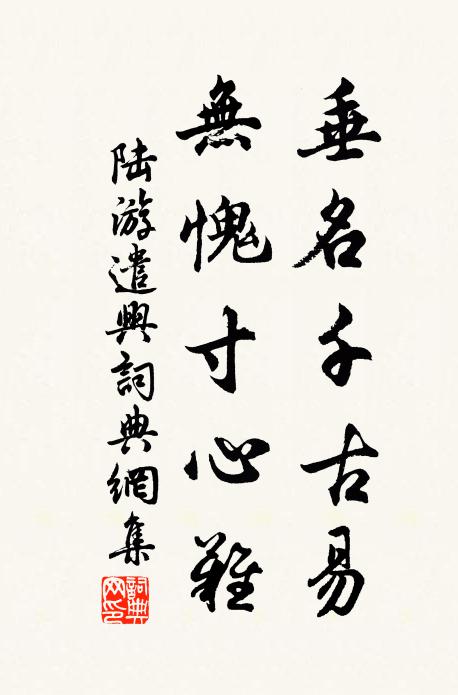 垂名千古易
無愧寸心難
陸游遣興詞典網集
詞典网印